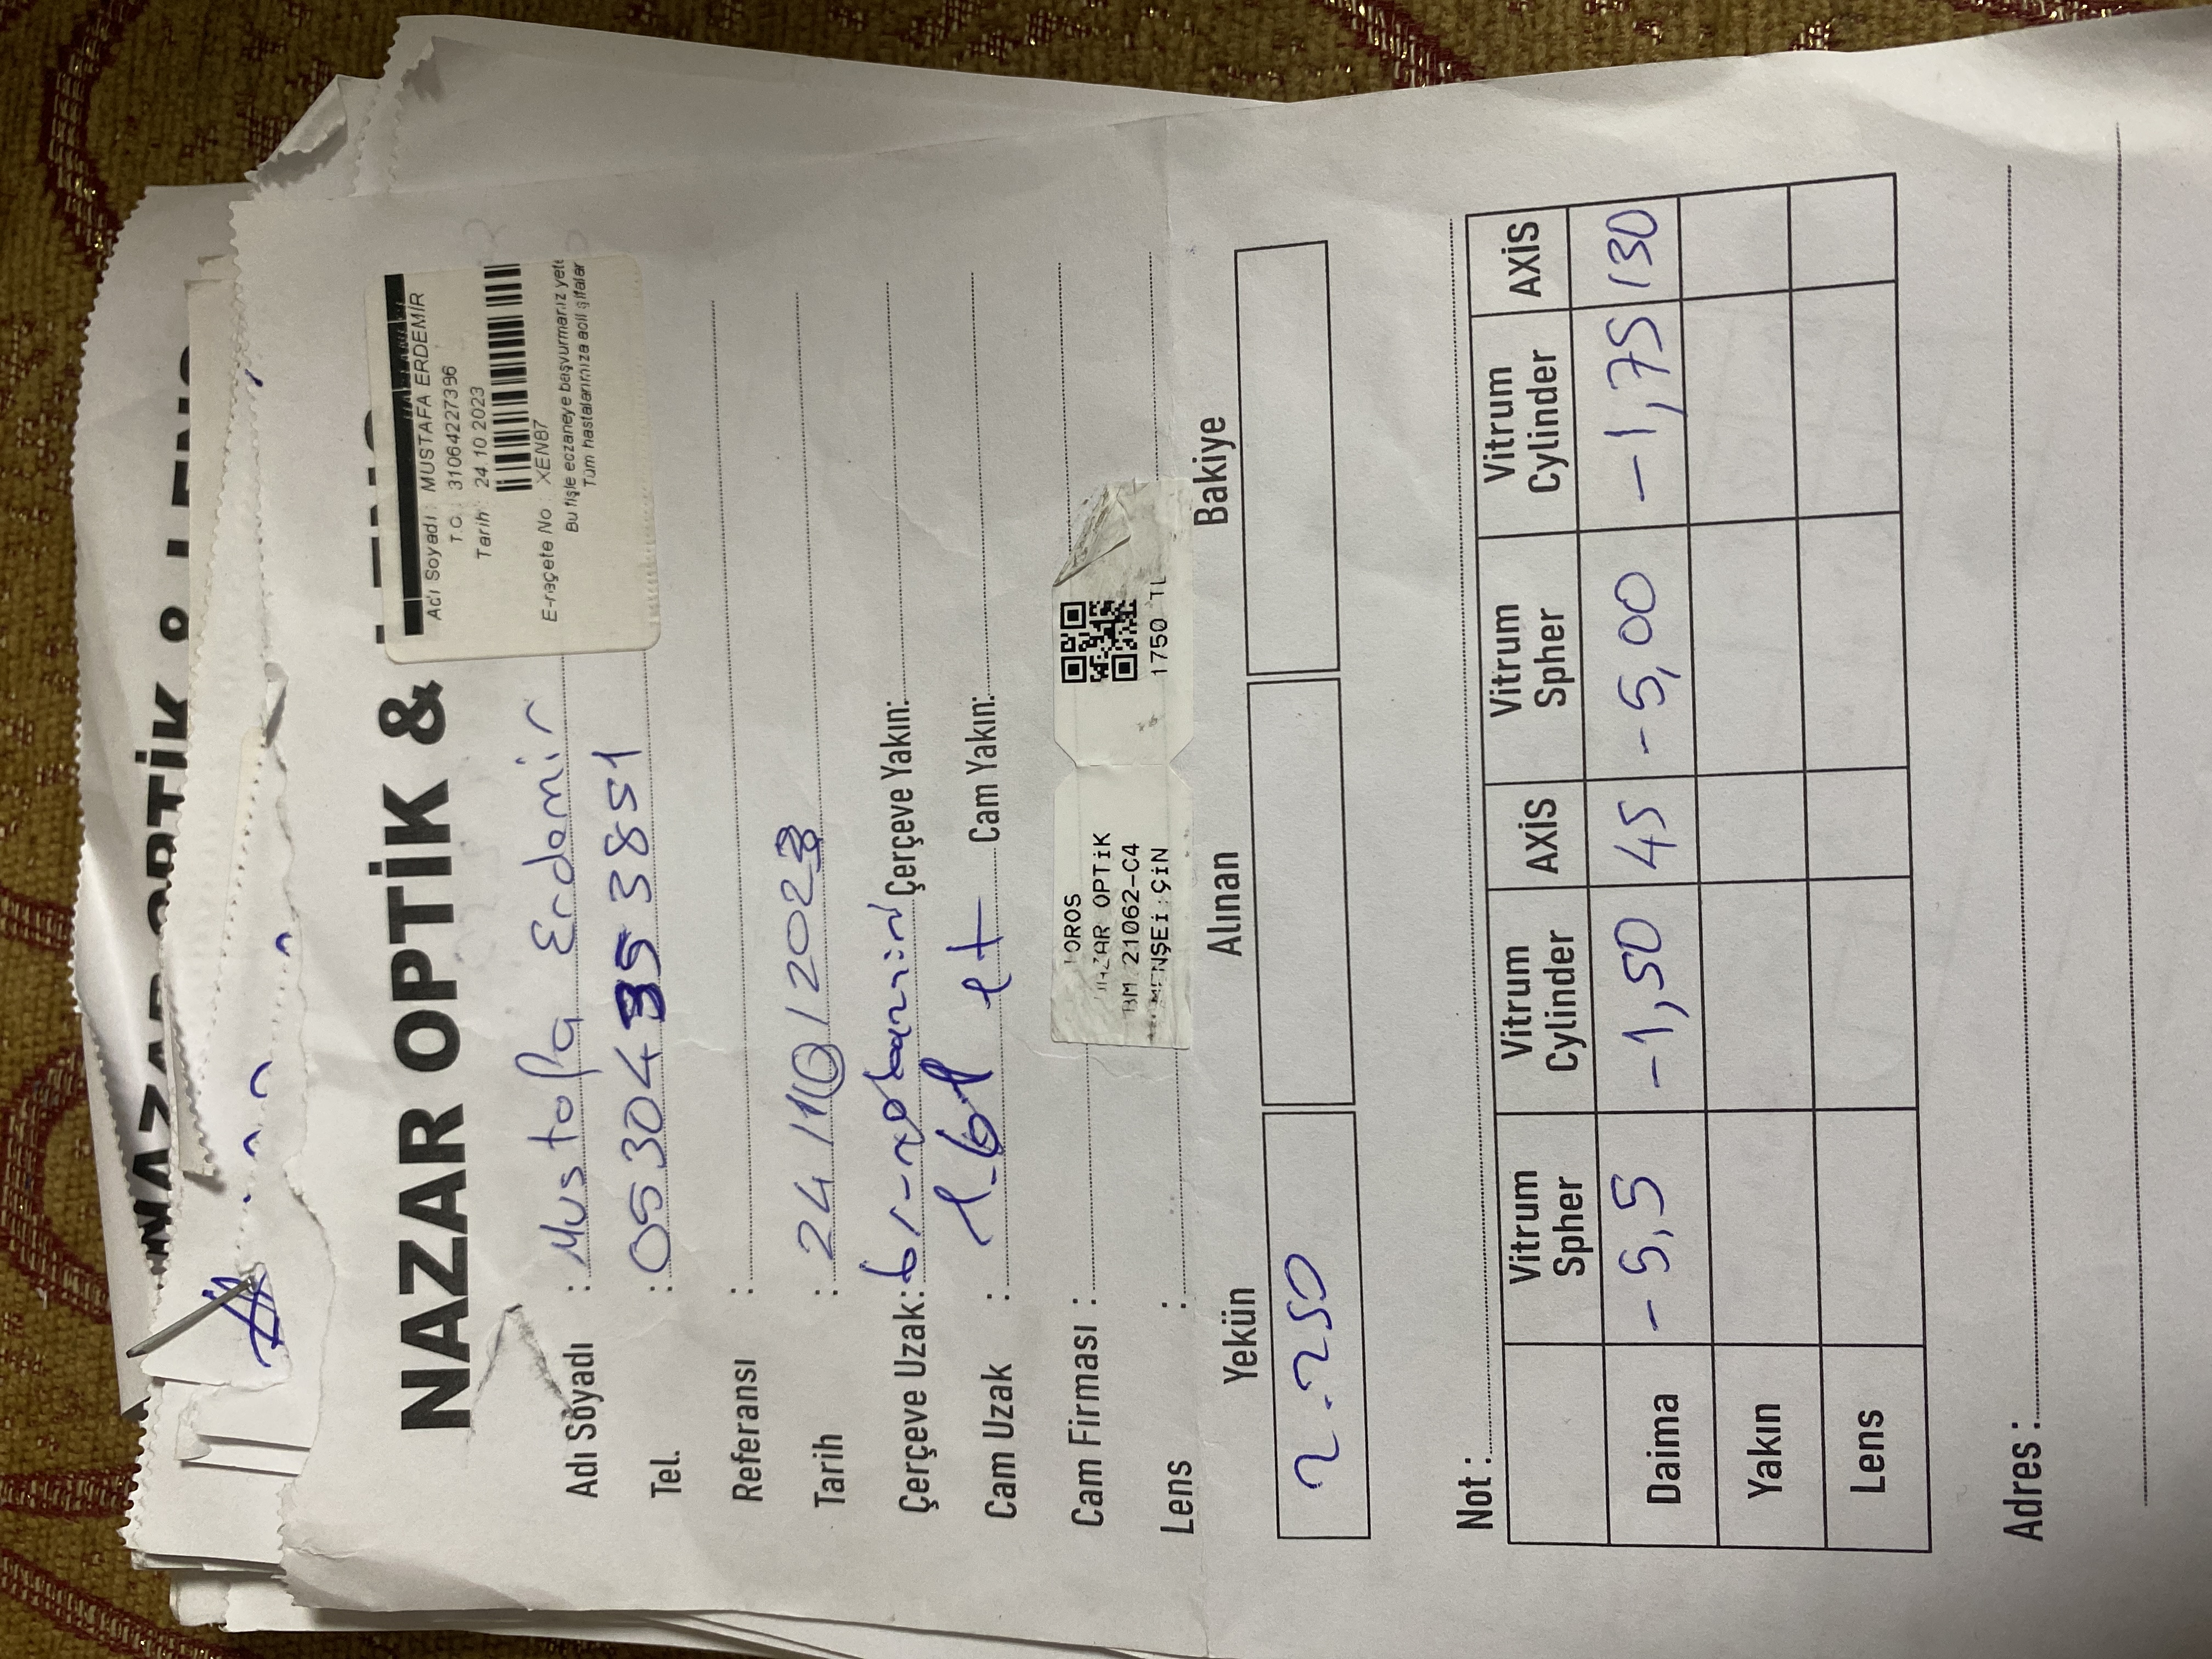 NAZAR OPTİK & LENS
NAZAR OPTİK &
Adı Soyadı : MUSTAFA ERDEMİR
T.C : 31064227396
Tarih : 24.10.2023
E-reçete No : XEN87
Bu fişle eczaneye başvurmanız yete
Tüm hastalarımıza acil şifalar
Adı Soyadı : Mustafa Erdemir
Tel. : 0530435 3851
Referansı :
Tarih : 24/10/2023
Çerçeve Uzak: Çerçeve Yakın:
Cam Uzak : 1.61 Cam Yakın:
Cam Firması :
OROS
NAZAR OPTİK
BM 21062-C4
MENŞEİ:ÇİN
1750 TL
Lens :
Yekün Alınan Bakiye
2.250
Not :
Vitrum Spher Vitrum Cylinder AXİS Vitrum Spher Vitrum Cylinder AXİS
Daima -5,5 -1,50 45 -5,00 -1,75 130
Yakın
Lens
Adres :